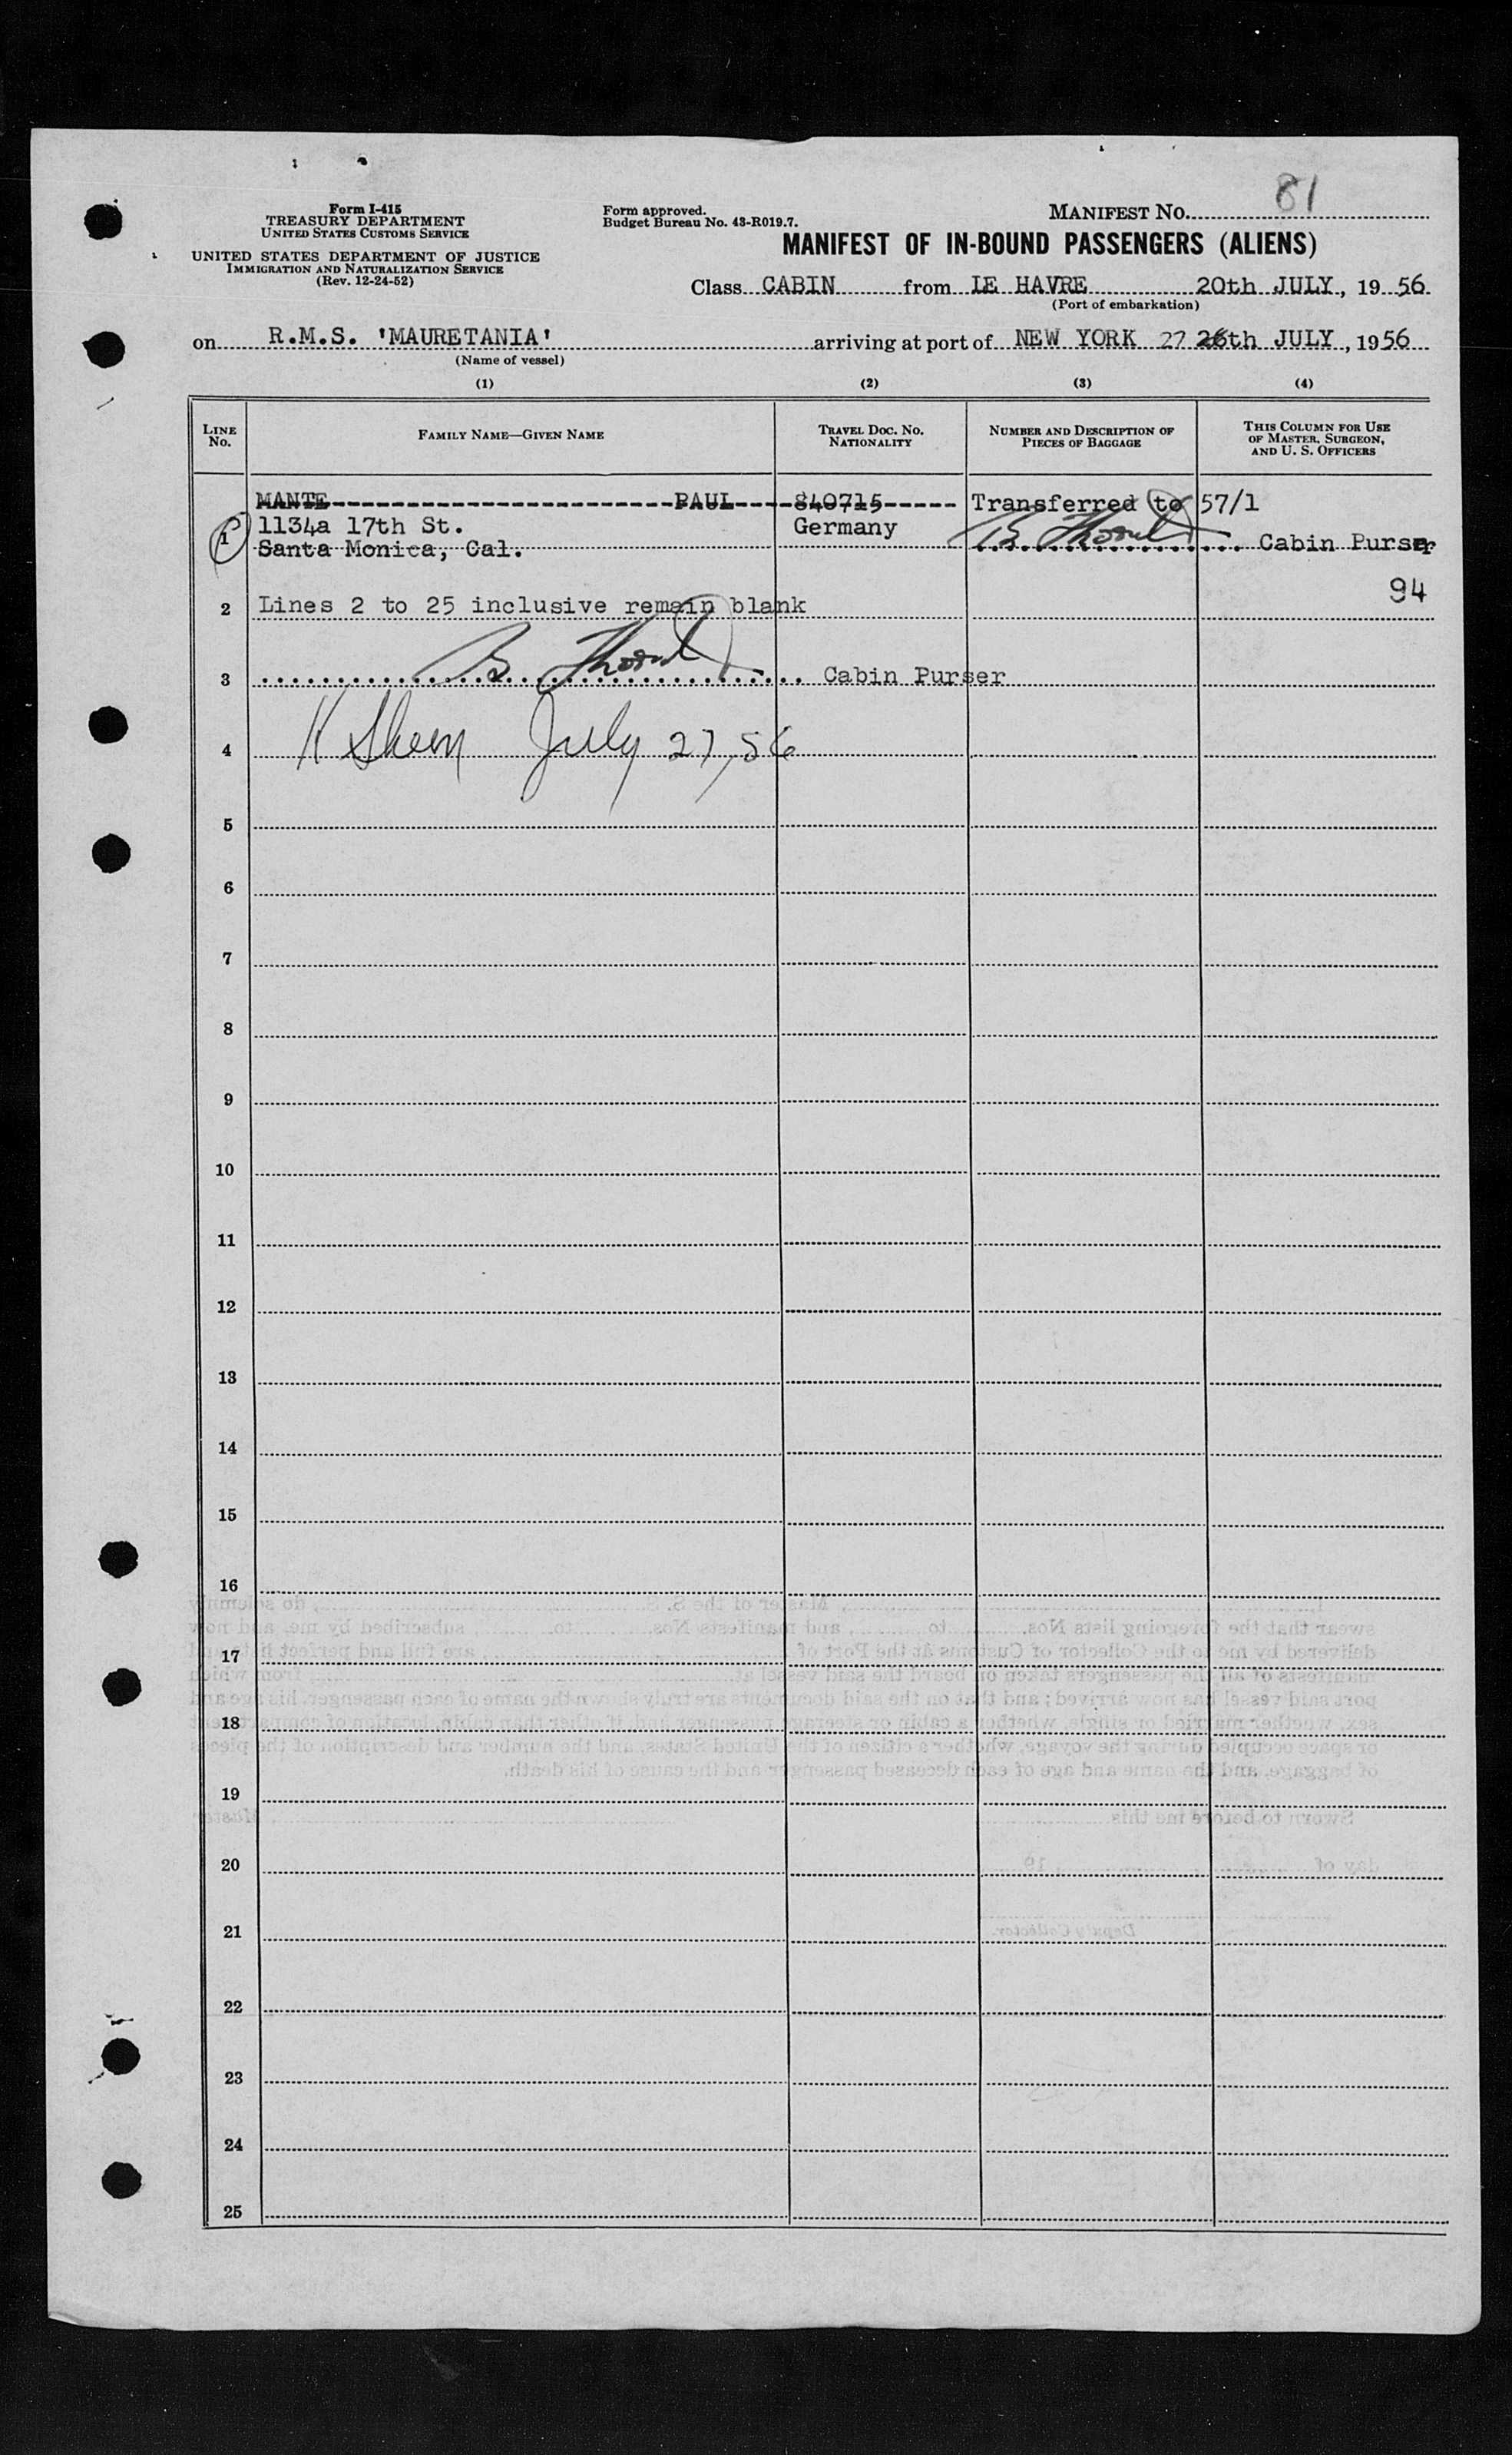 81
Form I-415
TREASURY DEPARTMENT
UNITED STATES CUSTOMS SERVICE
UNITED STATES DEPARTMENT OF JUSTICE
IMMIGRATION AND NATURALIZATION SERVICE
(Rev. 12-24-52)
Form approved.
Budget Bureau No. 43-R019.7.
MANIFEST No.
MANIFEST OF IN-BOUND PASSENGERS (ALIENS)
Class CABIN from LE HAVRE 20th JULY, 1956
(Port of embarkation)
on R.M.S. 'MAURETANIA' arriving at port of NEW YORK 27 26th JULY, 1956
(Name of vessel)
(1) (2) (3) (4)
LINE No. FAMILY NAME—GIVEN NAME TRAVEL DOC. NO. NATIONALITY NUMBER AND DESCRIPTION OF PIECES OF BAGGAGE THIS COLUMN FOR USE OF MASTER, SURGEON, AND U. S. OFFICERS
MANTE PAUL 840715 Transferred to 57/1
1134a 17th St. Germany
1 Santa Monica, Cal. Cabin Purser
94
2 Lines 2 to 25 inclusive remain blank
3 Cabin Purser
4 July 27, 56
5
6
7
8
9
10
11
12
13
14
15
16
17
18
19
20
21
22
23
24
25